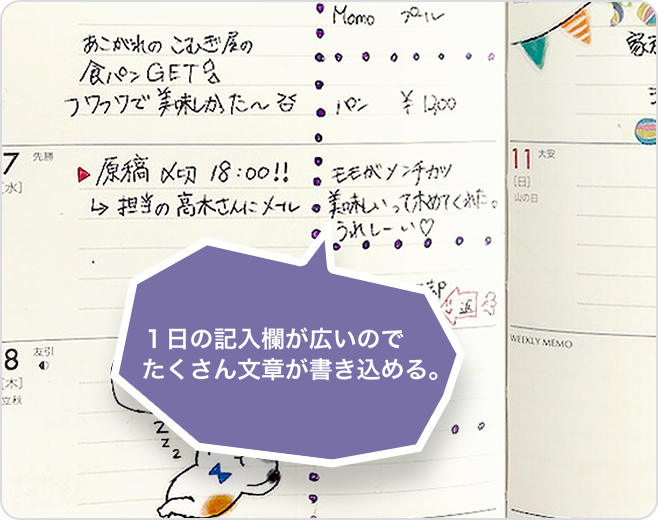 Momo プール
あこがれの こむぎ屋の
食パンGET
フワフワで 美味しかった〜
パン ¥1,200
7 先勝
[水]
原稿 〆切 18:00!!
↳ 担当の 高木さんに メール
モモが メンチカツ
美味しいって ホめてくれた。
うれしーい♡
返
1日の記入欄が広いので
たくさん文章が書き込める。
8 友引
[木]
立秋
zzz
家
11 大安
[日]
山の日
WEEKLY MEMO